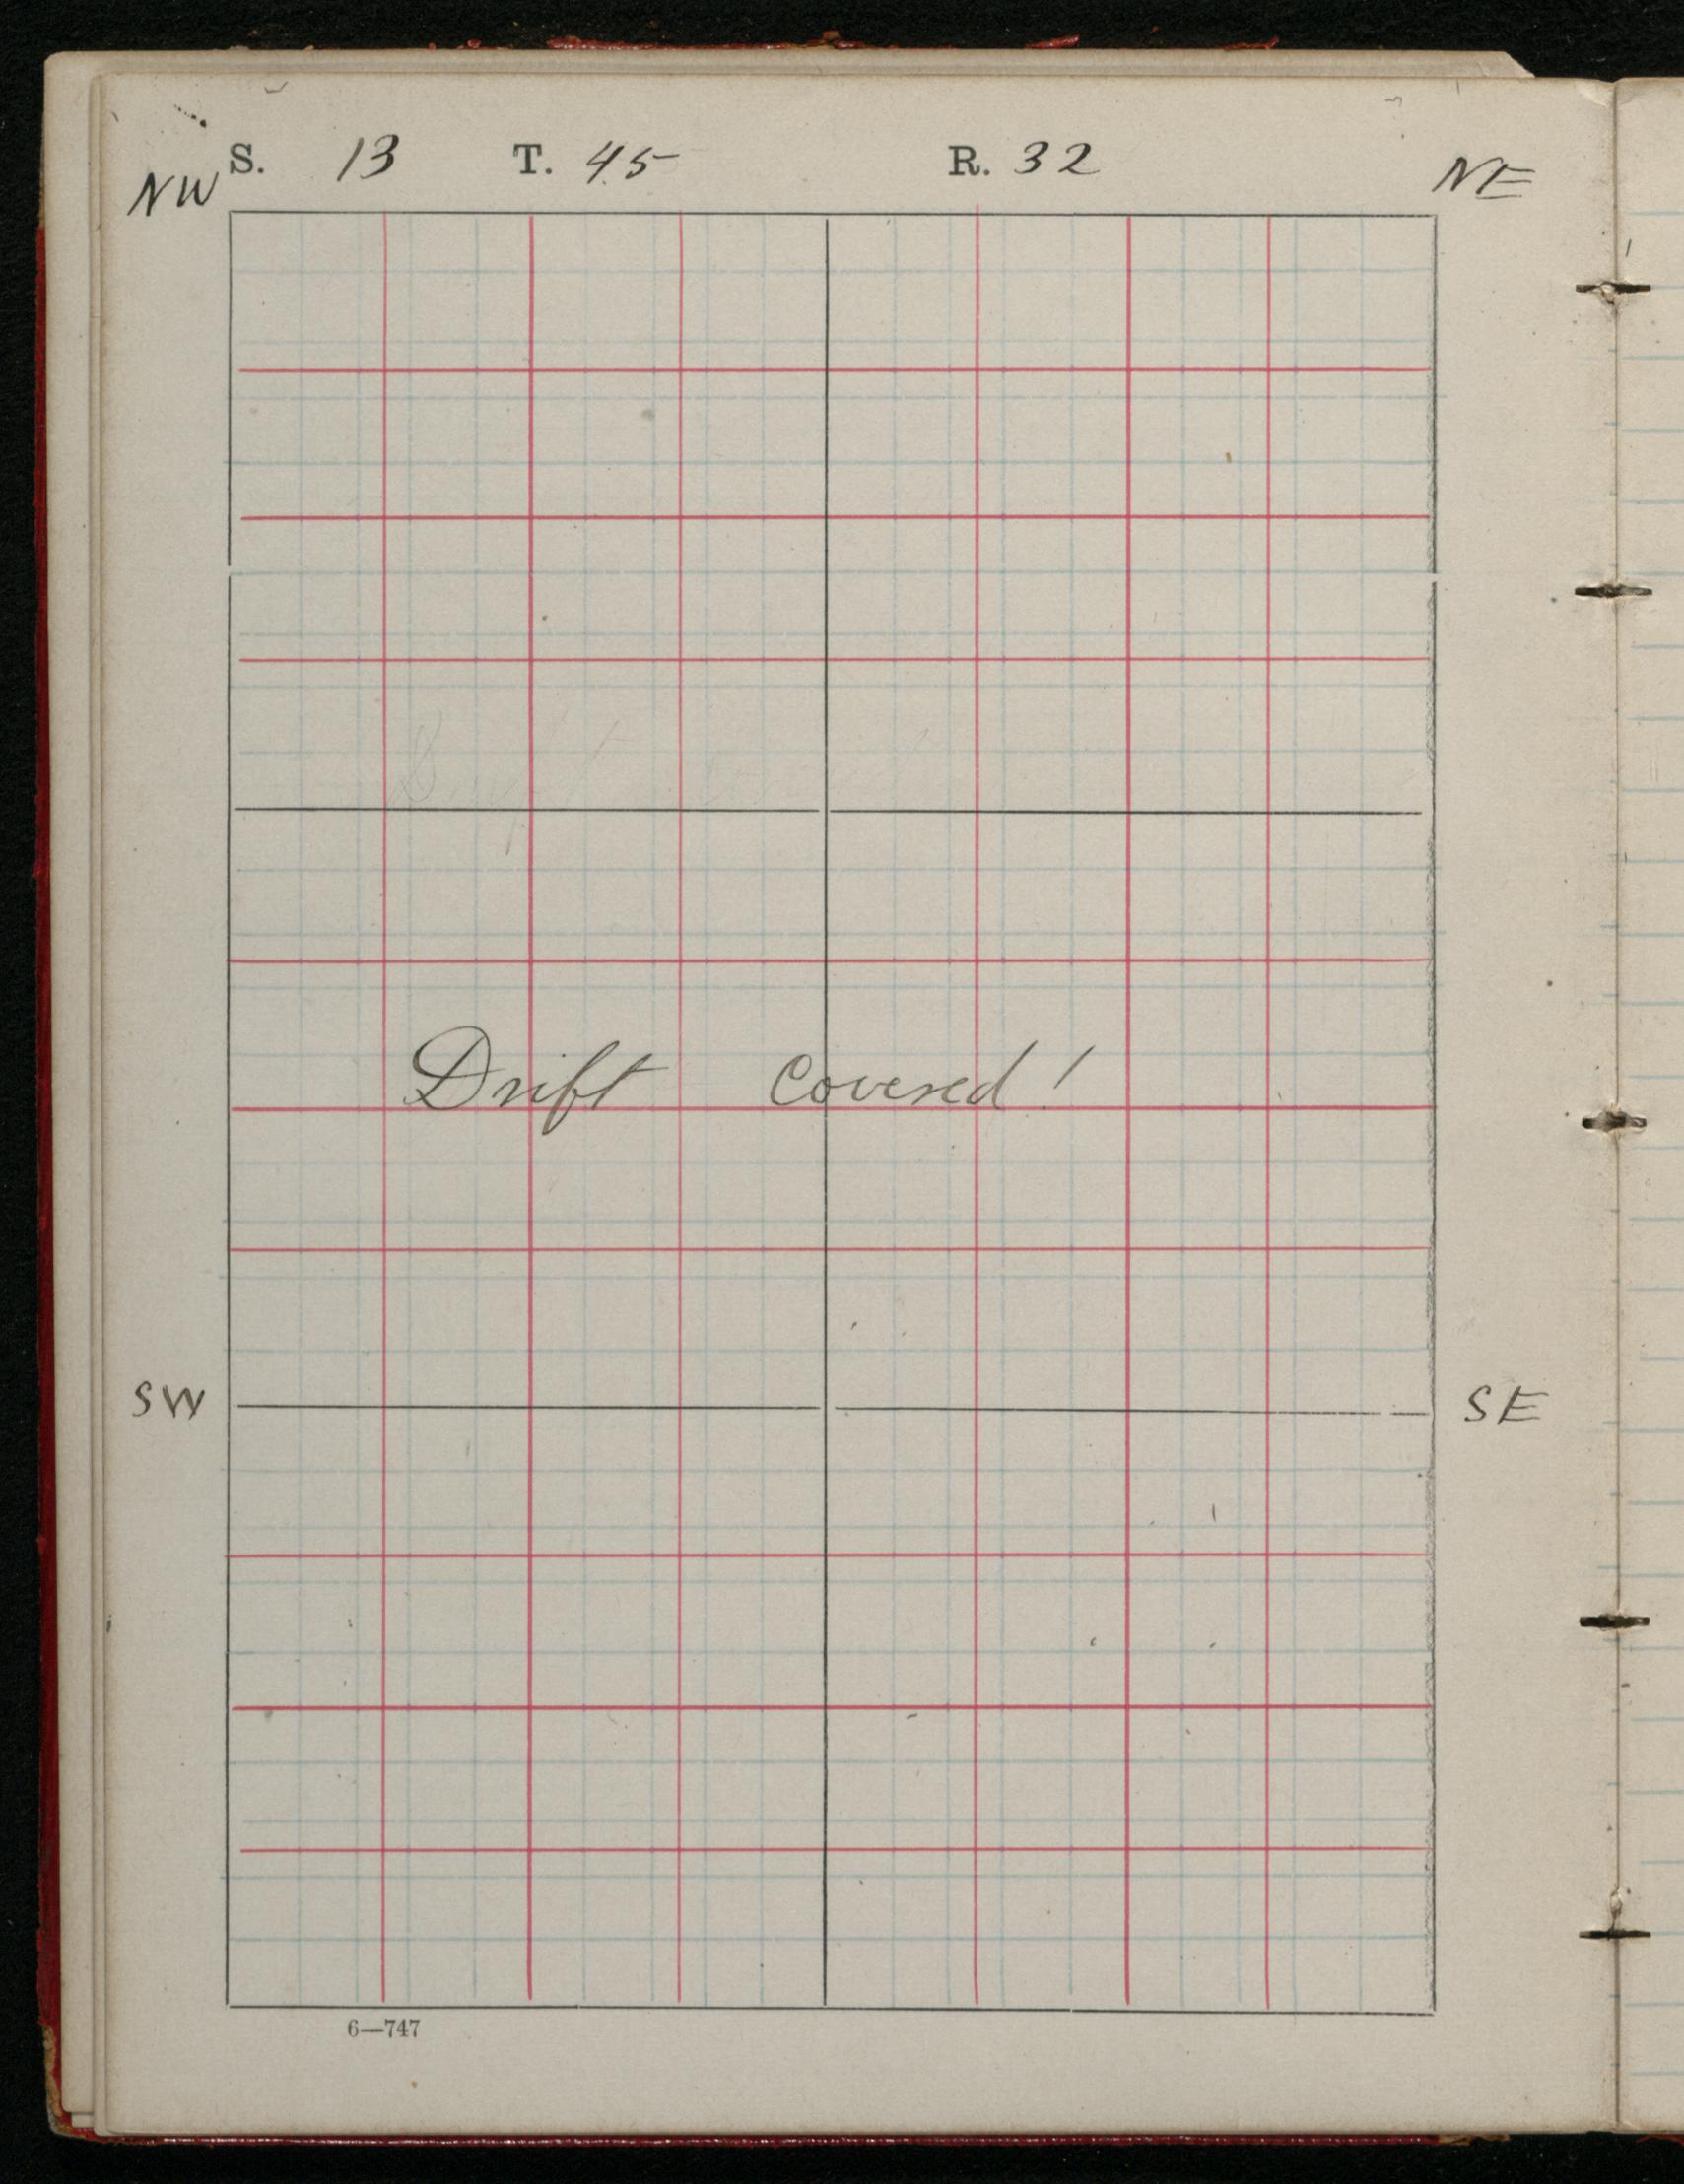 S. 13 T. 45 R. 32
NW NE
Drift Covered!
SW SE
6—747